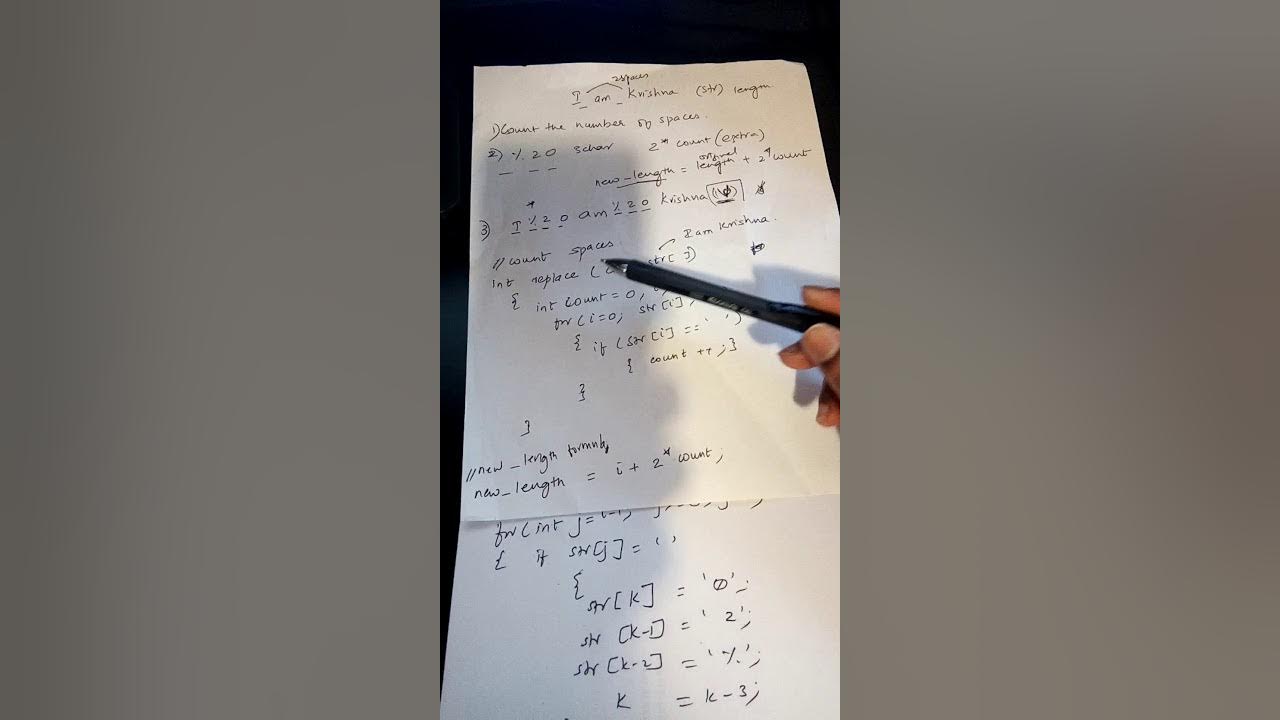 2spaces
I _ am _ Krishna (str) length
1) Count the number of spaces.
2) % 2 0 3char 2* count (extra)
new_length = original length + 2*count
3) I % 2 0 am % 2 0 Krishna (\0)
I am Krishna.
// count spaces
int replace ( str[ ])
{ int count = 0,
for (i=0; str[i]
{ if (str[i] == ' ')
{ count ++; }
}
}
//new_length formula
new_length = i + 2* count;
for (int j=i-1;
{ if str[j] = ' '
{
str[k] = '0';
str [k-1] = '2';
str[k-2] = '%';
k = k-3;